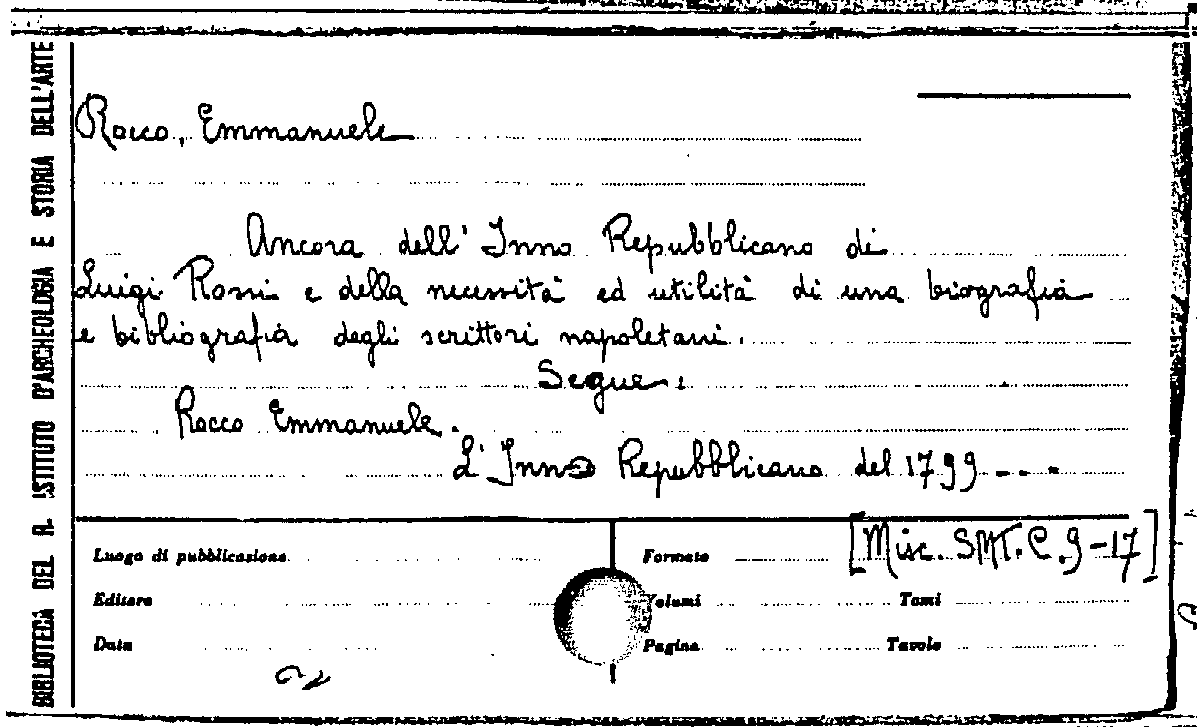 BIBLIOTECA DEL R. ISTITUTO D'ARCHEOLOGIA E STORIA DELL'ARTE
Rocco, Emmanuele
Ancora dell' Inno Repubblicano di
Luigi Rossi e della necessità ed utilità di una biografia
e bibliografia degli scrittori napoletani.
Segue:
Rocco Emmanuele.
L'Inno Repubblicano del 1799 - - -
[Misc. SMT. C. 9-17]
Luogo di pubblicazione
Formato
Editore
Volumi
Tomi
Data
Pagine
Tavole